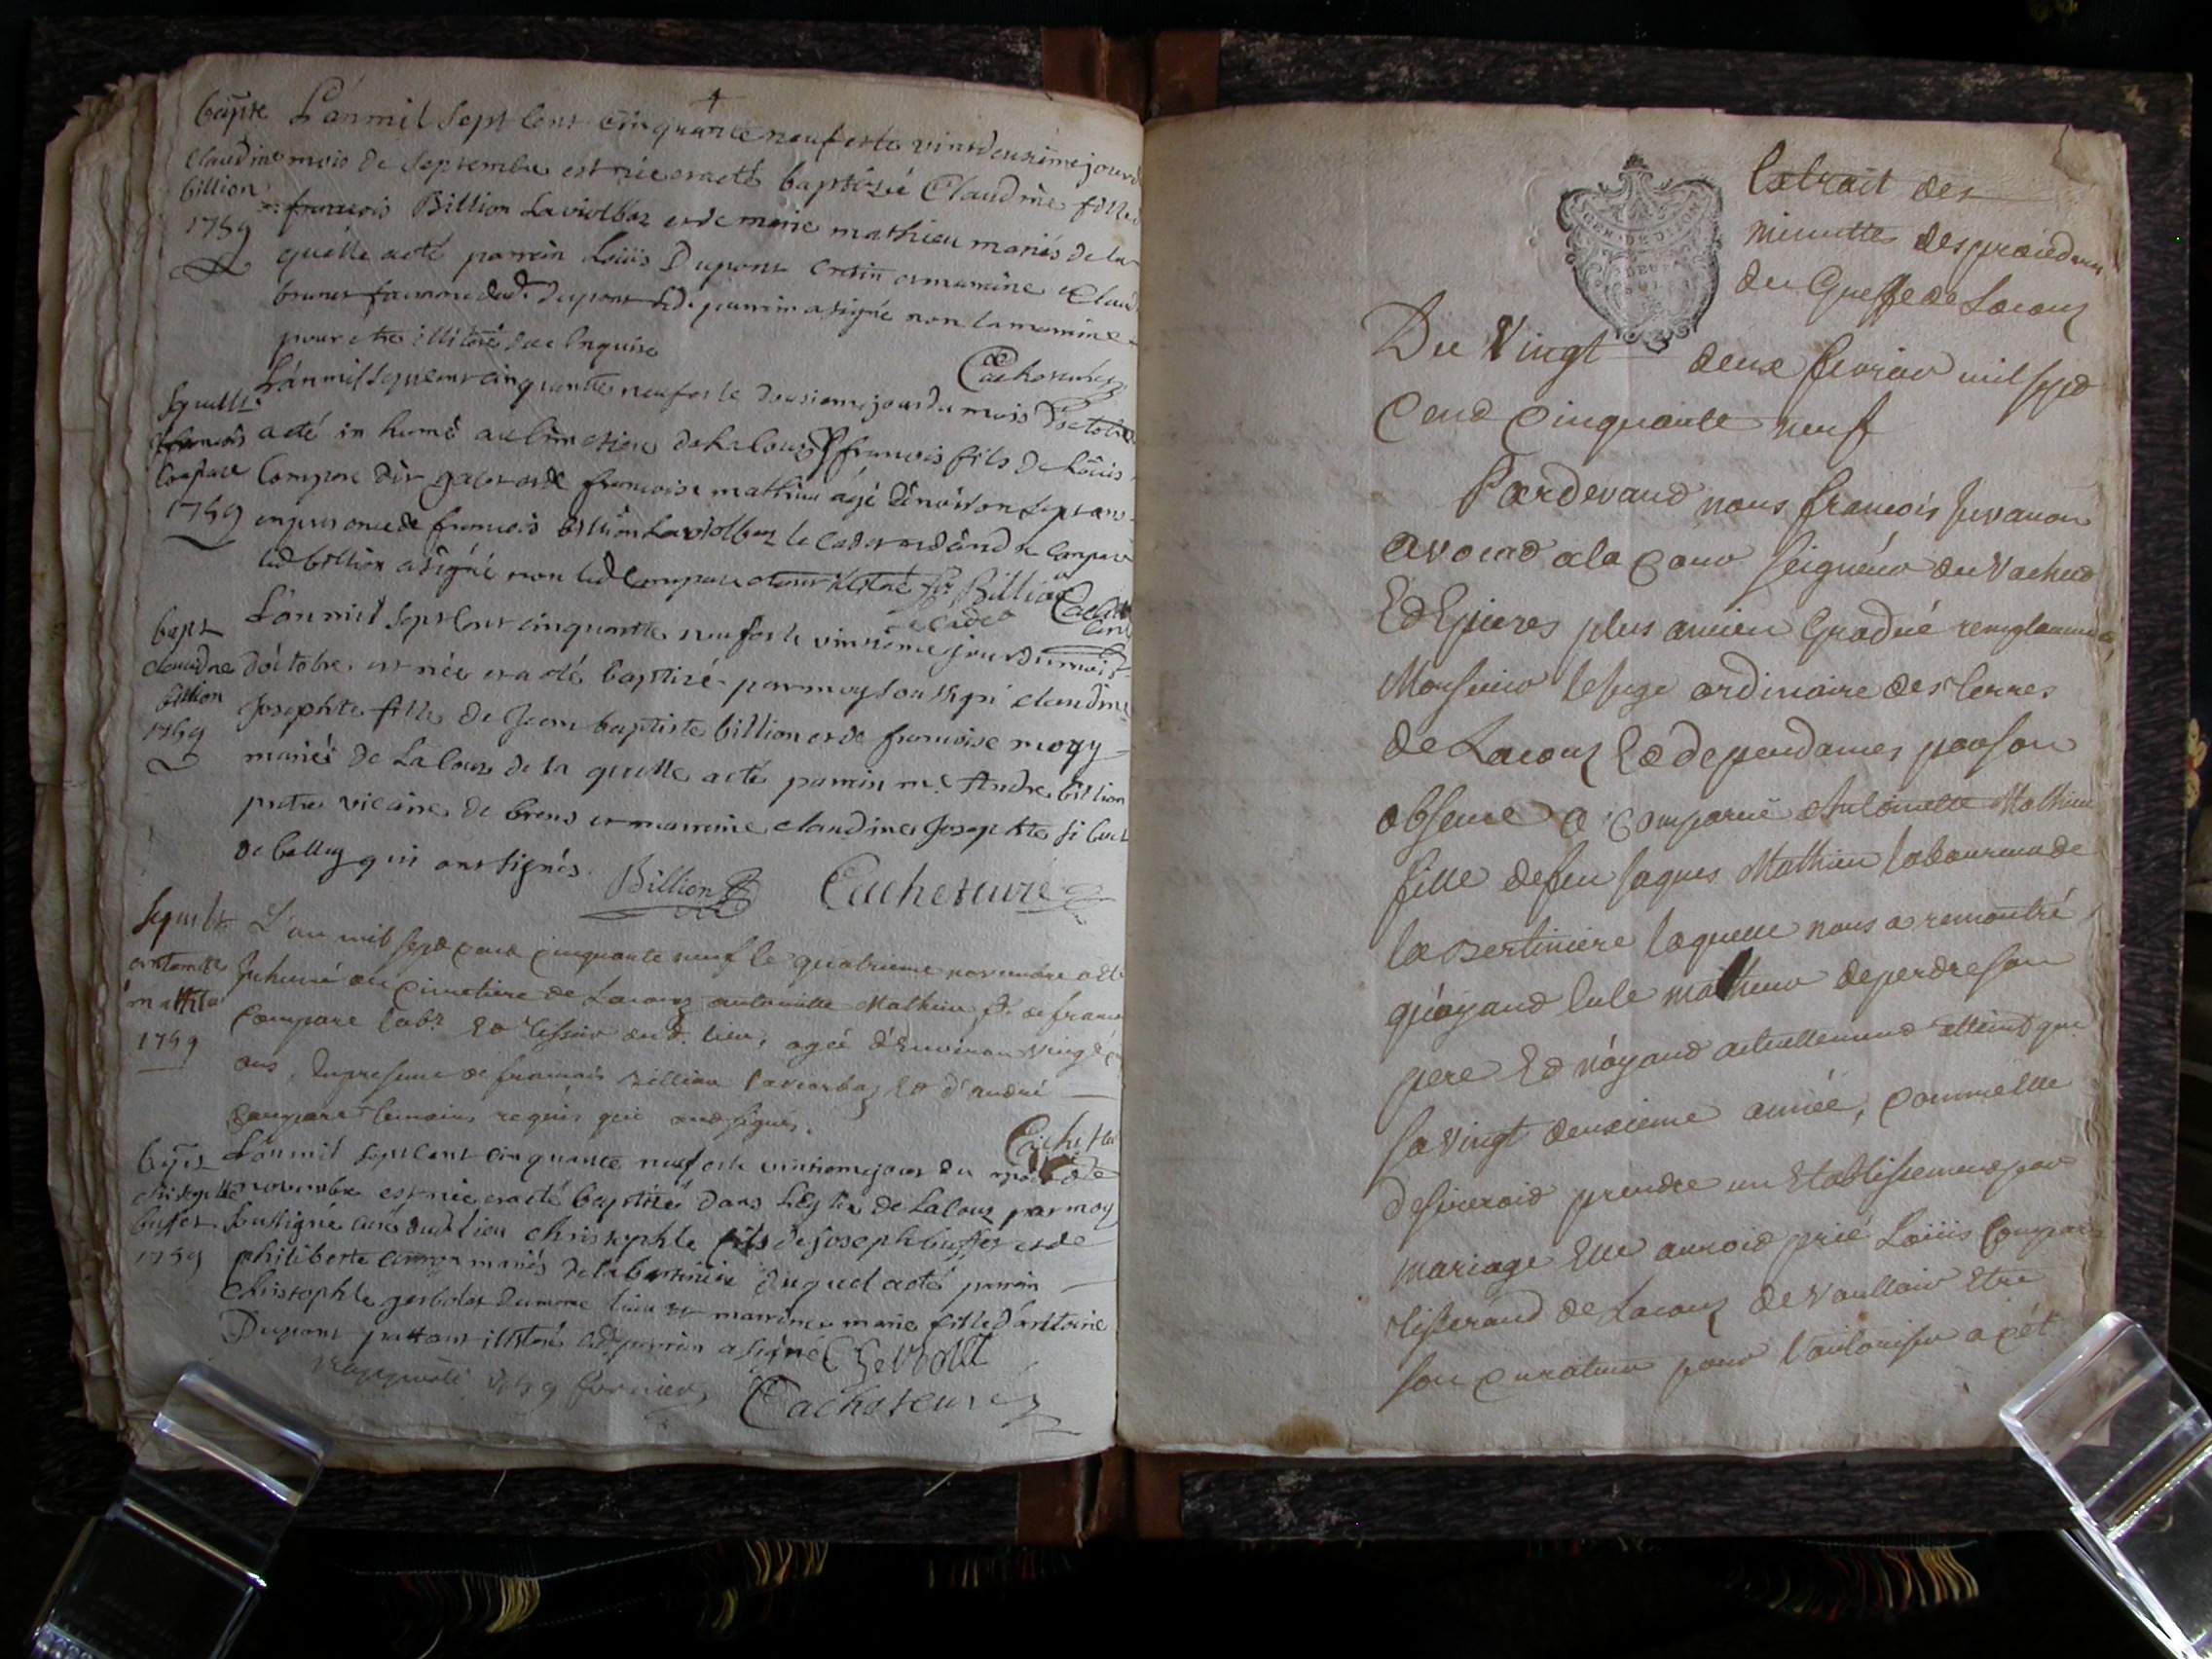 bapte
Claudine
billion
1759
L'an mil sept cent cinquante neuf et le vint deusième jour d
mois de septembre est née et a eté baptizée Claudine fille
françois Billion Laviolbaz et de marie mathieu mariés de la
quelle a eté parrein Loüis Dupont et marraine Claud
brunet femme dud. dupont led. parrain a signé non la marraine
pour etre illiterée de ce enquise
Cachet curé
sepult.
françois
Compare
1759
L'an mil sept cent cinquante neuf et le dousiemejour du mois d'octobre
a eté in humé au cimetiere de Lacouz françois fils de Loüis
Compare dit et de francoise mathieu agé d'environ sept ans
en presence de françois Billion Laviolbaz le cadet et d'andré compare
led billion a signé non led Compare illiteré fr Billion
le cadet
Cachet
curé
bapt
claudine
billion
1759
L'an mil sept cent cinquante neuf et le vintieme jour du mois
d'octobre est née et a eté baptizé par moy soussigné claudine
Josephte fille de Jean baptiste billion et de francoise mogy
mariés de Lacouz de la quelle a eté parrain me. Andre billion
pretre vicaire de brens et marraine claudine Josephte
de belley qui ont signés.
Billion Cachet curé
sepult.
antoinette
mathieu
1759
L'an mil sept cent cinquante neuf le quatrieme novembre a eté
Inhumé au cimetiere de Lacouz antoinette Mathieu f. de francois
Compare labr. Et tissier dud. lieu, agée d'Environ vingt
ans, En presence de francois Billion laviolbaz Et d'andré
Compare temoins requis qui ont signés.
Cachet
bapt
christophle
buffet
1759
L'an mil sept cent cinquante neuf et le vintieme jour du mois de
novembre est née et a eté baptizé dans L'Eglise de Lacouz par moy
soussigné curé dudt lieu christophle fils de Joseph buffet et de
philiberte mariés de la bertiniere duquel a eté parrain
christophle gerbolet du meme lieu et marraine marie fille d'antoine
Dupont illiteré led. parrain a signé
Cachet curé
Extrait des
minuttes des procedures
du Greffe de Lacouz
Du Vingt deux fevrier mil sept
Cent Cinquante neuf
Pardevant nous francois Juvanon
avocat a la Cour seigneur du Vachat
Et Epieres plus ancien Gradué remplacant
Monsieur le Juge ordinaire des terres
de Lacouz Et dependances pour son
absence a Comparüe Antoinette Mathieu
fille de feu Jaques Mathieu laboureur de
la Bertiniere laquelle nous a remontré
qu'ayant eu le malheur de perdre son
pere Et n'ayant actuellement atteint que
sa vingt deuxieme année, Comme elle
desireroit prendre un Etablissement par
mariage Elle auroit prié Loüis Compare
tisserand de Lacouz de vouloir Etre
son curateur pour l'autoriser a cet